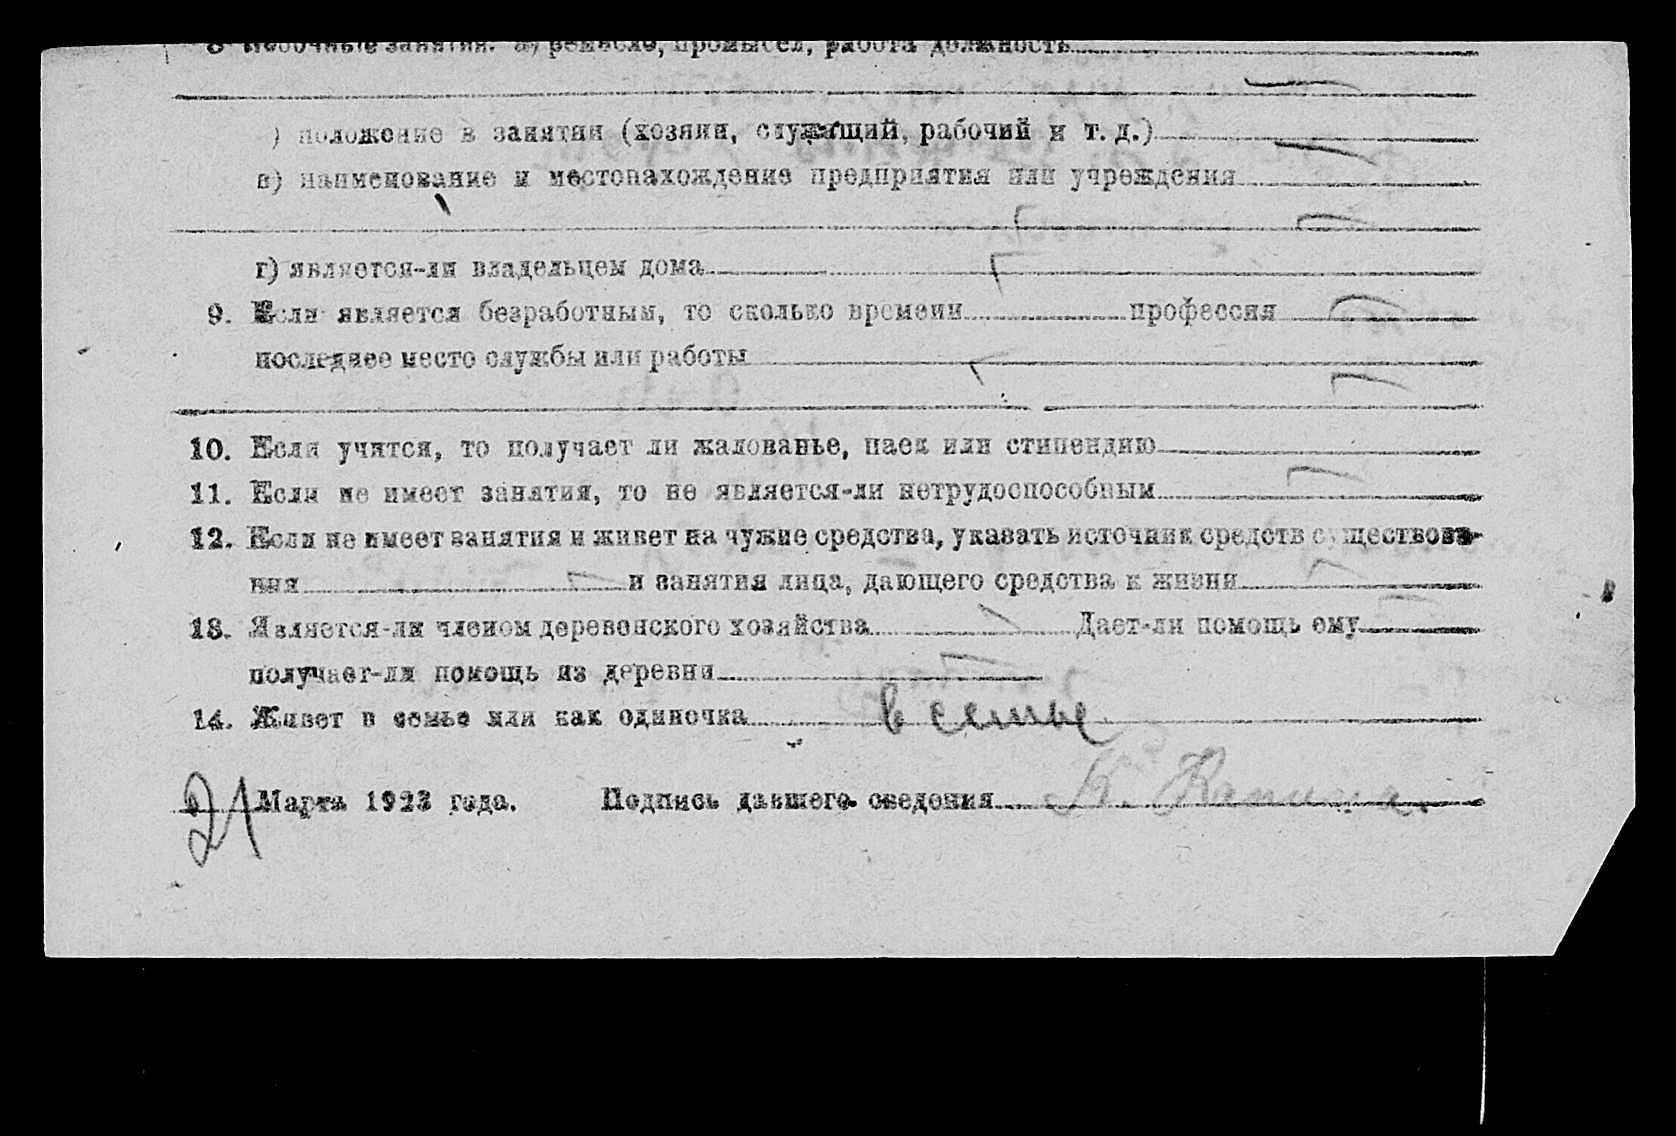 8 Побочные занятия: а) ремесло, промысел, работа должность
) положение в занятии (хозяин, служащий, рабочий и т. д.)
в) наименование и местонахождение предприятия или учреждения
г) является-ли владельцем дома
9. Если является безработным, то сколько времени профессия
последнее место службы или работы
10. Если учится, то получает ли жалованье, паек или стипендию
11. Если не имеет занятия, то не является-ли нетрудоспособным
12. Если не имеет занятия и живет на чужие средства, указать источник средств существова-
ния и занятия лица, дающего средства к жизни
13. Является-ли членом деревенского хозяйства Дает-ли помощь ему
получает-ли помощь из деревни
14. Живет в семье или как одиночка в семье
21 Марта 1923 года. Подпись давшего сведения К.